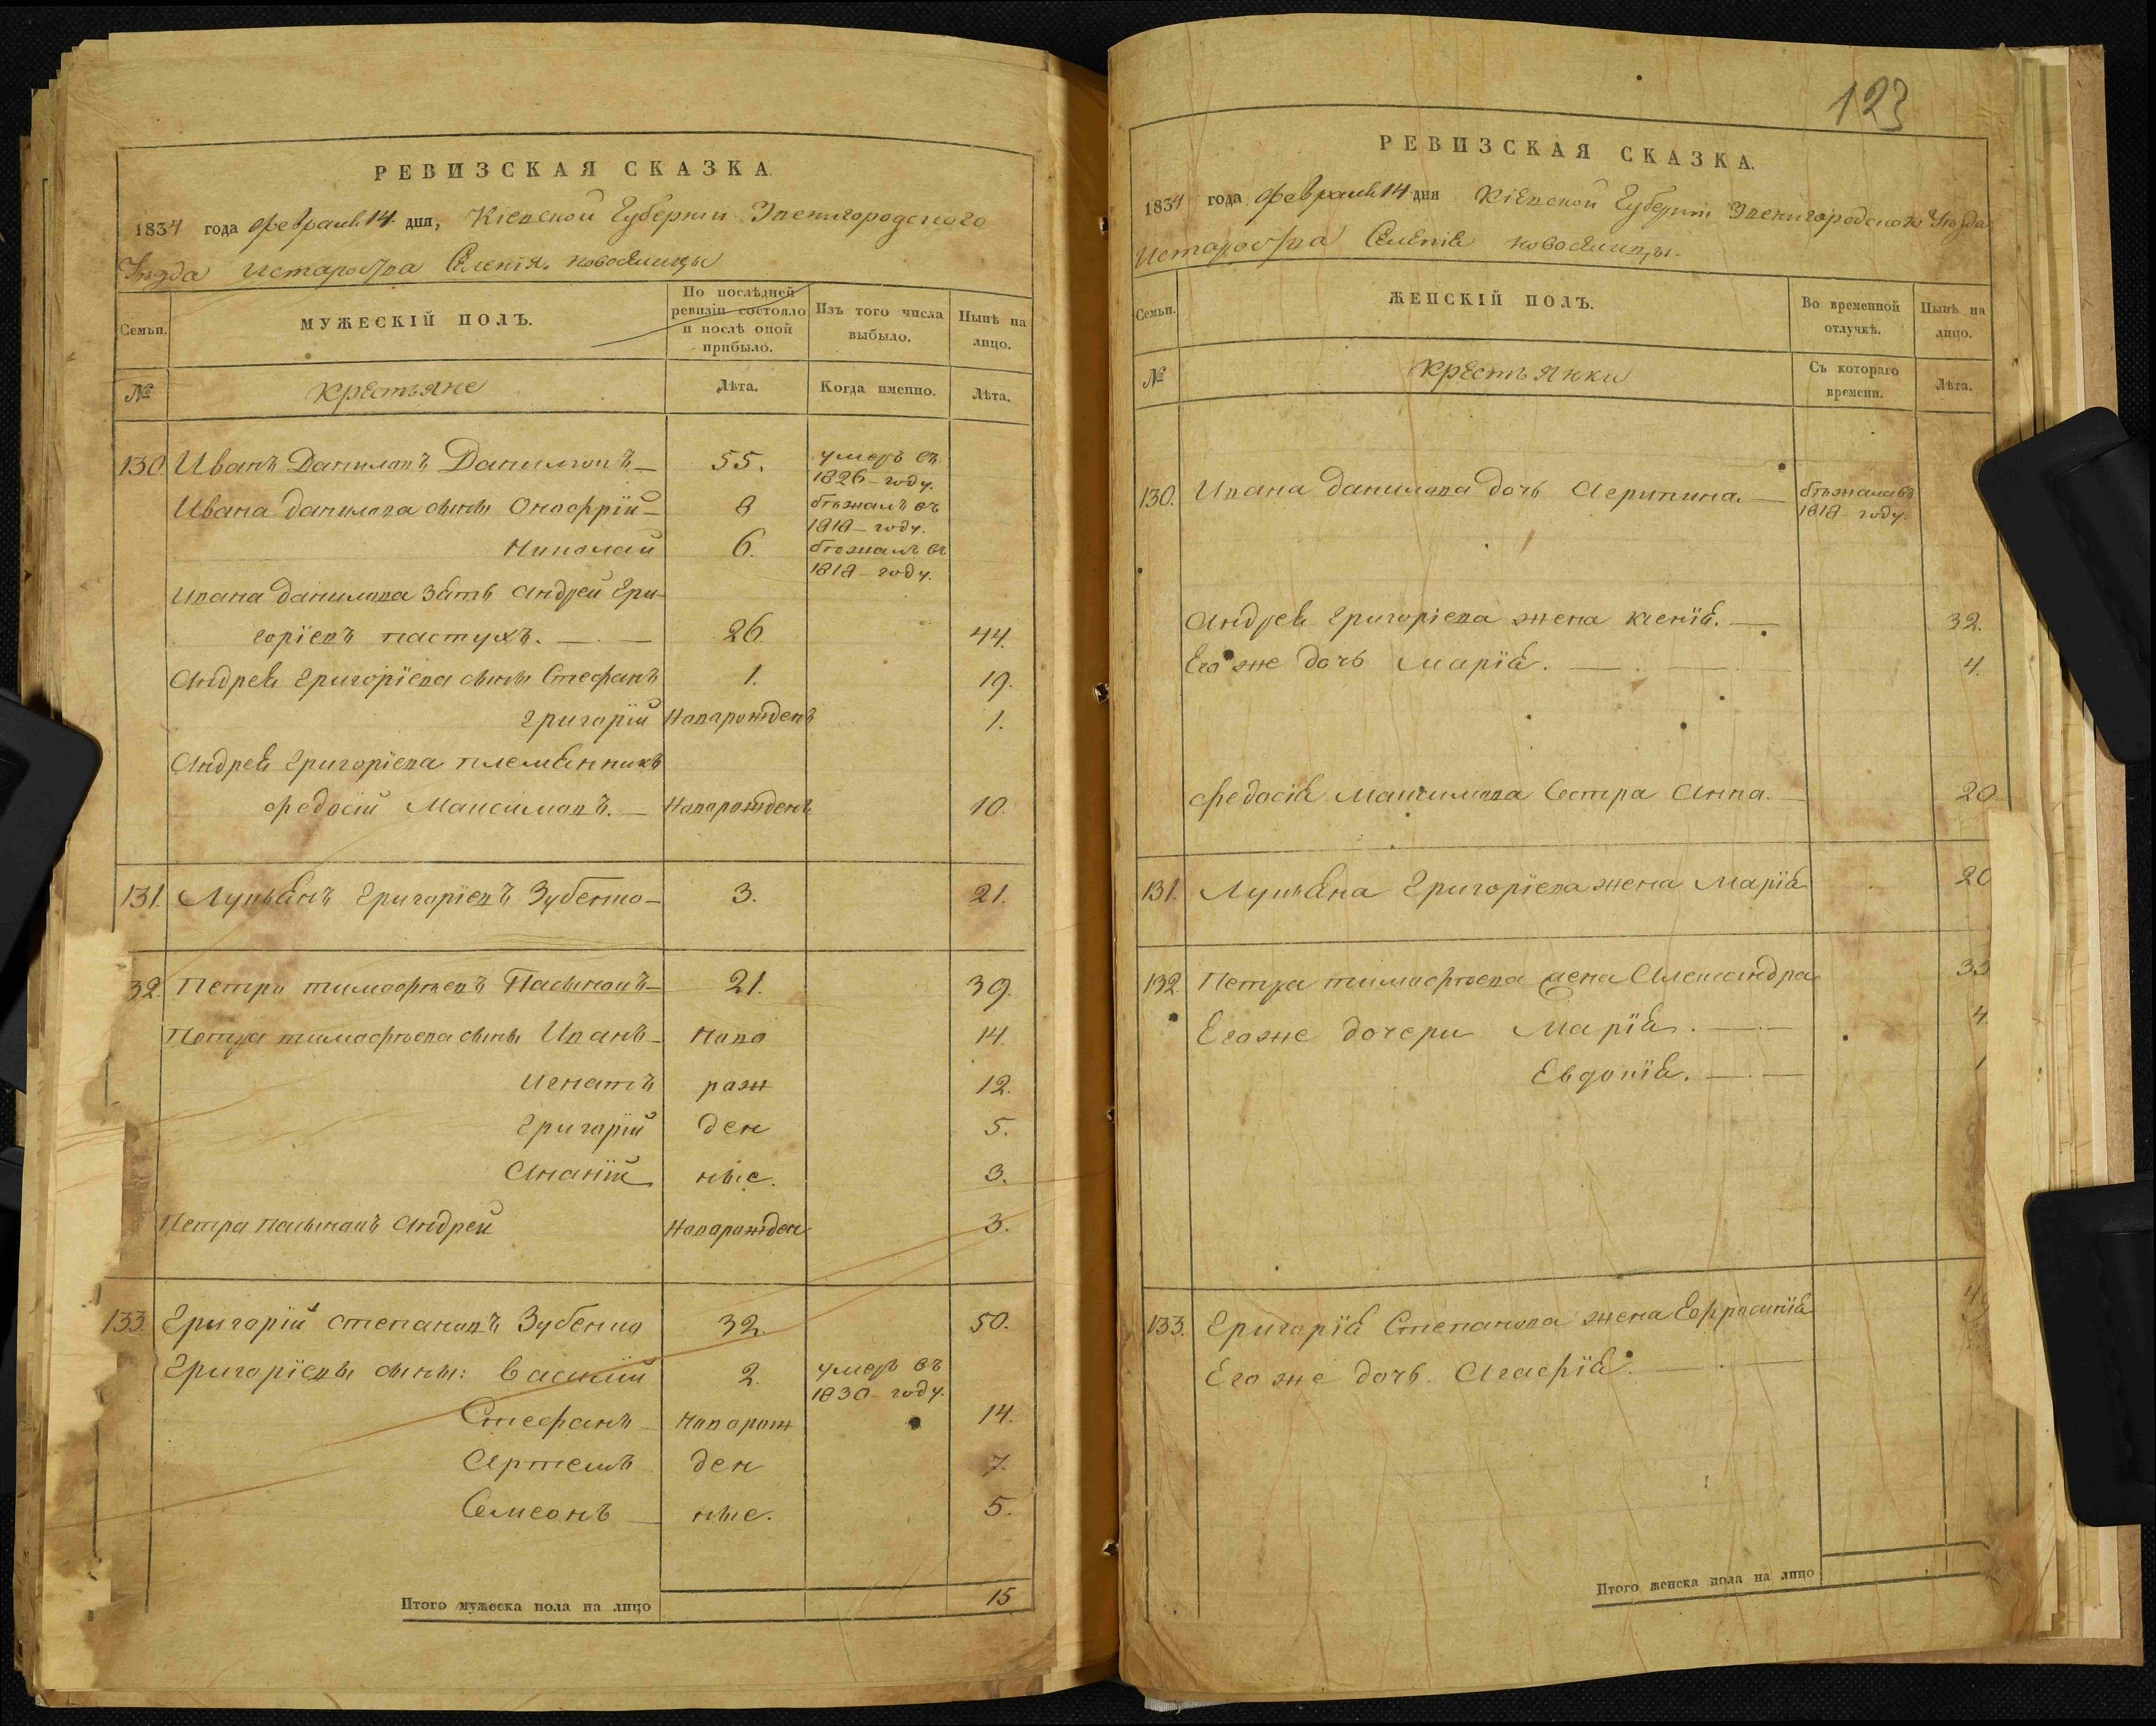 РЕВИЗСКАЯ СКАЗКА.
1834 года февраля 14 дня, Кіевской Губерніи Звенигородского
Уѣзда Истароства Селенія Новоселицы
Семьи.
МУЖЕСКІЙ ПОЛЪ.
По послѣдней ревизіи состояло и послѣ оной прибыло.
Изъ того числа выбыло.
Нынѣ на лицо.
№
Крестьяне
Лѣта.
Когда именно.
Лѣта.
130. Иванъ Даниловъ 55. умеръ въ 1826 году.
Ивана Данилова сыны Онофрій 8 бѣжалъ въ 1818 году.
Николай 6. бѣжалъ въ 1818 году.
Ивана Данилова зять Андрей Гри-
горіевъ пастухъ. 26. 44.
Андрея Григоріева сыны Стефанъ 1. 19.
Григорій новорожденъ 1.
Андрея Григоріева племянникъ
Федосій Максимовъ. новорожденъ 10.
131. Лукьянъ Григоріевъ Зубенко 3. 21.
32. Петро Тимофѣевъ 21. 39.
Петра Тимофѣева сыны Иванъ ново 14.
Игнатъ рож 12.
Григорій ден 5.
Ананій ные. 3.
Петра Андрей новорожден 3.
133. Григорій Степановъ Зубенко 32. 50.
Григоріевы сыны: Василій 2. умеръ въ 1830 году.
Стефанъ новорож 14.
Артемъ ден 7.
Семеонъ ные. 5.
Итого мужеска пола на лицо 15
123
РЕВИЗСКАЯ СКАЗКА.
1834 года февраля 14 дня Кіевской Губерніи Звенигородского Уѣзда
Истароства Селенія Новоселицы.
Семьи.
ЖЕНСКІЙ ПОЛЪ.
Во временной отлучкѣ.
Нынѣ на лицо.
№
Крестьянки
Съ котораго времени.
Лѣта.
130. Ивана Данилова дочь Агрипина. бѣжала въ 1818 году.
Андрея Григоріева жена Ксенія. 32.
Его же дочь Марія. 4.
Федосія Максимова сестра Анна. 20
131. Лукьяна Григоріева жена Марія 20
132. Петра Тимофѣева жена Александра 33
Его же дочери Марія. 4.
Евдокія. 1
133. Григорія Степанова жена Ефросинія
Его же дочь Агафія.
Итого женска пола на лицо